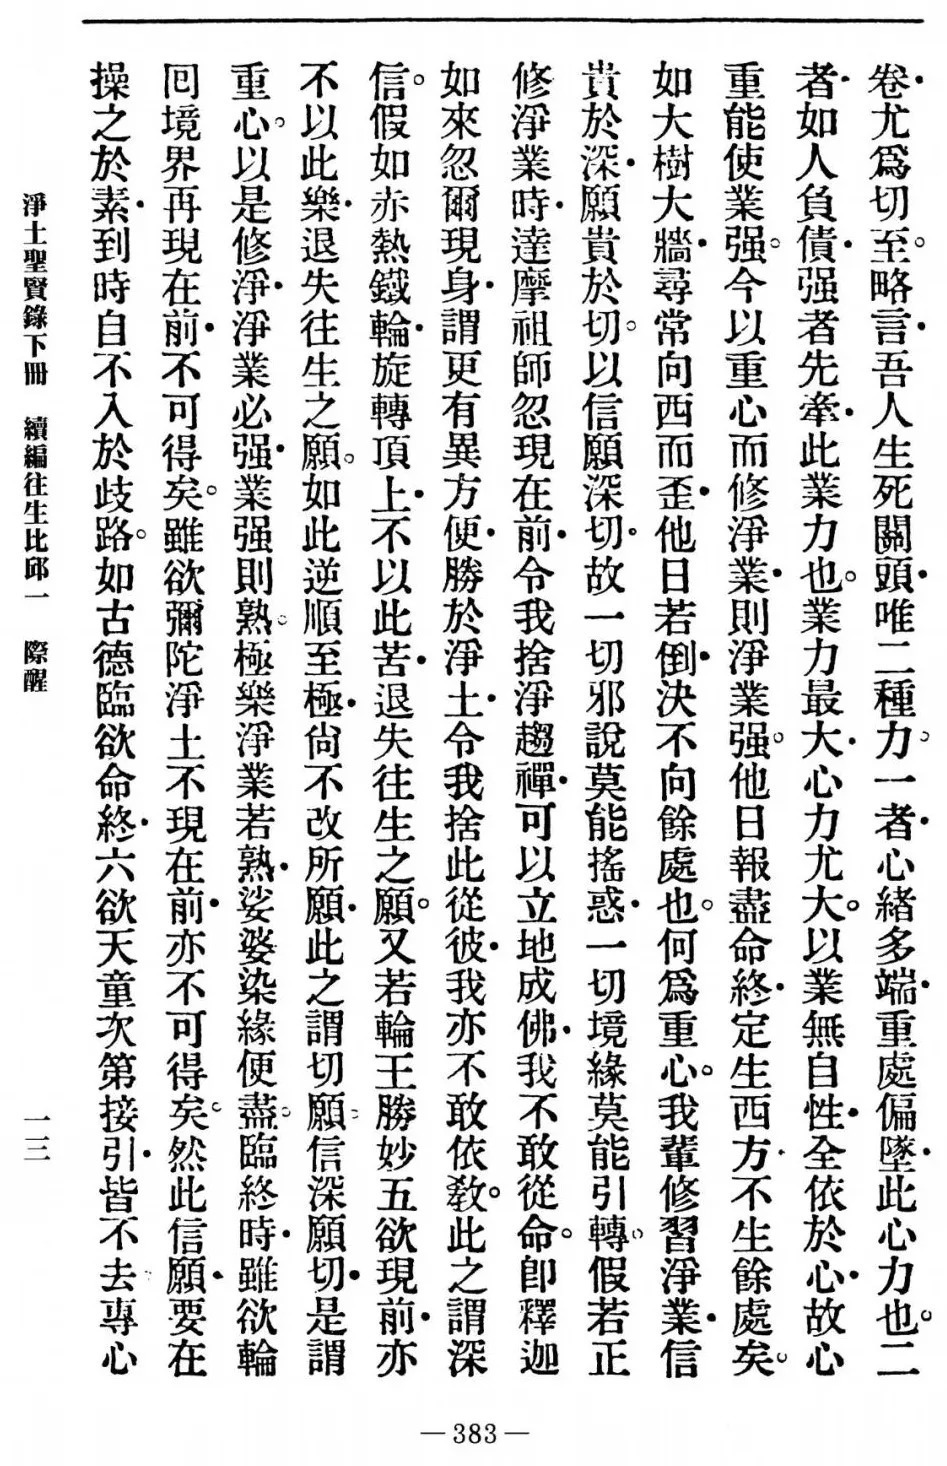 卷・尤爲切至。略言・吾人生死關頭・唯二種力。一者・心緒多端・重處偏墜・此心力也。二
者・如人負債・强者先牽・此業力也。業力最大・心力尤大。以業無自性・全依於心・故心
重能使業强。今以重心而修淨業・則淨業强。他日報盡命終・定生西方・不生餘處矣。
如大樹大牆・尋常向西而歪・他日若倒・決不向餘處也。何爲重心。我輩修習淨業・信
貴於深・願貴於切。以信願深切。故一切邪說莫能搖惑・一切境緣莫能引轉。假若正
修淨業時・達摩祖師忽現在前・令我捨淨趨禪・可以立地成佛・我不敢從命。卽釋迦
如來忽爾現身・謂更有異方便・勝於淨土・令我捨此從彼・我亦不敢依敎。此之謂深
信。假如赤熱鐵輪・旋轉頂上・不以此苦・退失往生之願。又若輪王勝妙五欲現前・亦
不以此樂・退失往生之願。如此逆順至極・尙不改所願・此之謂切願。信深願切・是謂
重心。以是修淨・淨業必强・業强則熟。極樂淨業若熟・娑婆染緣便盡。臨終時・雖欲輪
回境界再現在前・不可得矣。雖欲彌陀淨土不現在前・亦不可得矣。然此信願・要在
操之於素・到時自不入於歧路。如古德臨欲命終・六欲天童次第接引・皆不去・專心
淨土聖賢錄下冊　續編往生比邱一　際醒
一三
—383—